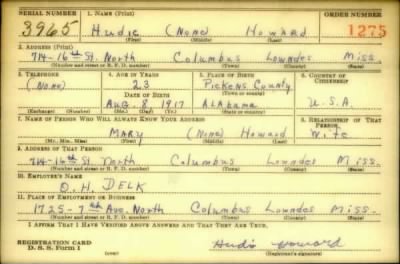 SERIAL NUMBER 1. NAME (Print) ORDER NUMBER
3965 Hudie (None) Howard 1275
(First) (Middle) (Last)
2. ADDRESS (Print)
714-16th St. North Columbus Lowndes Miss.
(Number and street or R. F. D. number) (Town) (County) (State)
3. TELEPHONE 4. AGE IN YEARS 5. PLACE OF BIRTH 6. COUNTRY OF CITIZENSHIP
(None) 23 Pickens County
DATE OF BIRTH (Town or county)
Aug. 8 1917 Alabama U.S.A.
(Exchange) (Number) (Mo.) (Day) (Yr.) (State or country)
7. NAME OF PERSON WHO WILL ALWAYS KNOW YOUR ADDRESS 8. RELATIONSHIP OF THAT PERSON
Mary (None) Howard Wife
(Mr., Mrs., Miss) (First) (Middle) (Last)
9. ADDRESS OF THAT PERSON
714-16th St North Columbus Lowndes Miss.
(Number and street or R. F. D. number) (Town) (County) (State)
10. EMPLOYER'S NAME
O. H. DELK
11. PLACE OF EMPLOYMENT OR BUSINESS
1725-7th Ave. North Columbus Lowndes Miss.
(Number and street or R. F. D. number) (Town) (County) (State)
I AFFIRM THAT I HAVE VERIFIED ABOVE ANSWERS AND THAT THEY ARE TRUE.
REGISTRATION CARD
D. S. S. Form 1 (over) Hudie Howard
(Registrant's signature)